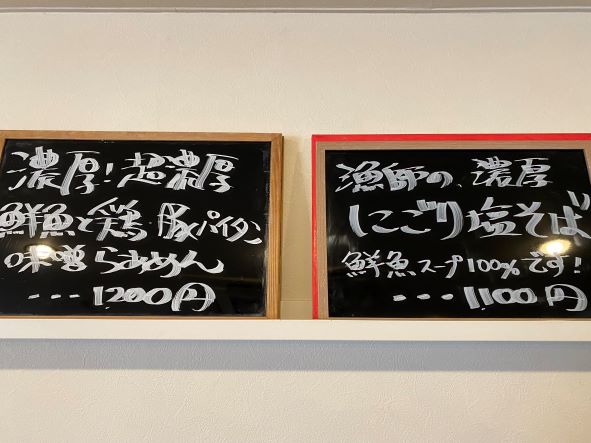 濃厚！超濃厚
鮮魚と鶏・豚パイタン
味噌らぁめん
・・・1200円
漁師の、濃厚
にごり塩そば
鮮魚スープ100%です！
・・・1,100円